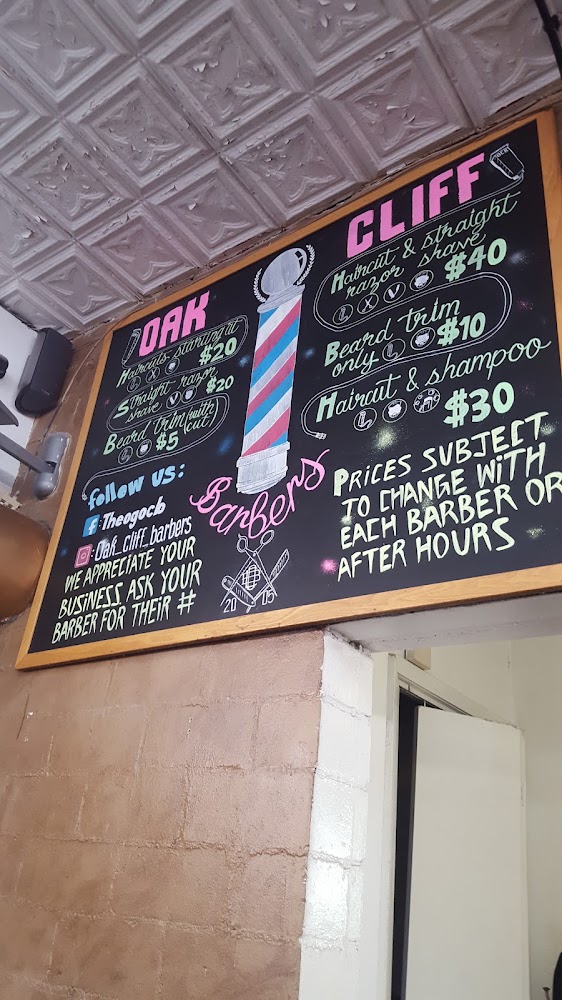 OAK
Haircuts starting at
$20
Straight razor
shave $20
Beard trim (with
cut) $5
follow us:
f : Theogocb
: Oak_cliff_barbers
WE APPRECIATE YOUR
BUSINESS ASK YOUR
BARBER FOR THEIR #
Barbers
20 16
CLIFF
Haircut & straight
razor shave
$40
Beard trim
only $10
Haircut & shampoo
$30
PRICES SUBJECT
TO CHANGE WiTH
EACH BARBER OR
AFTER HOURS